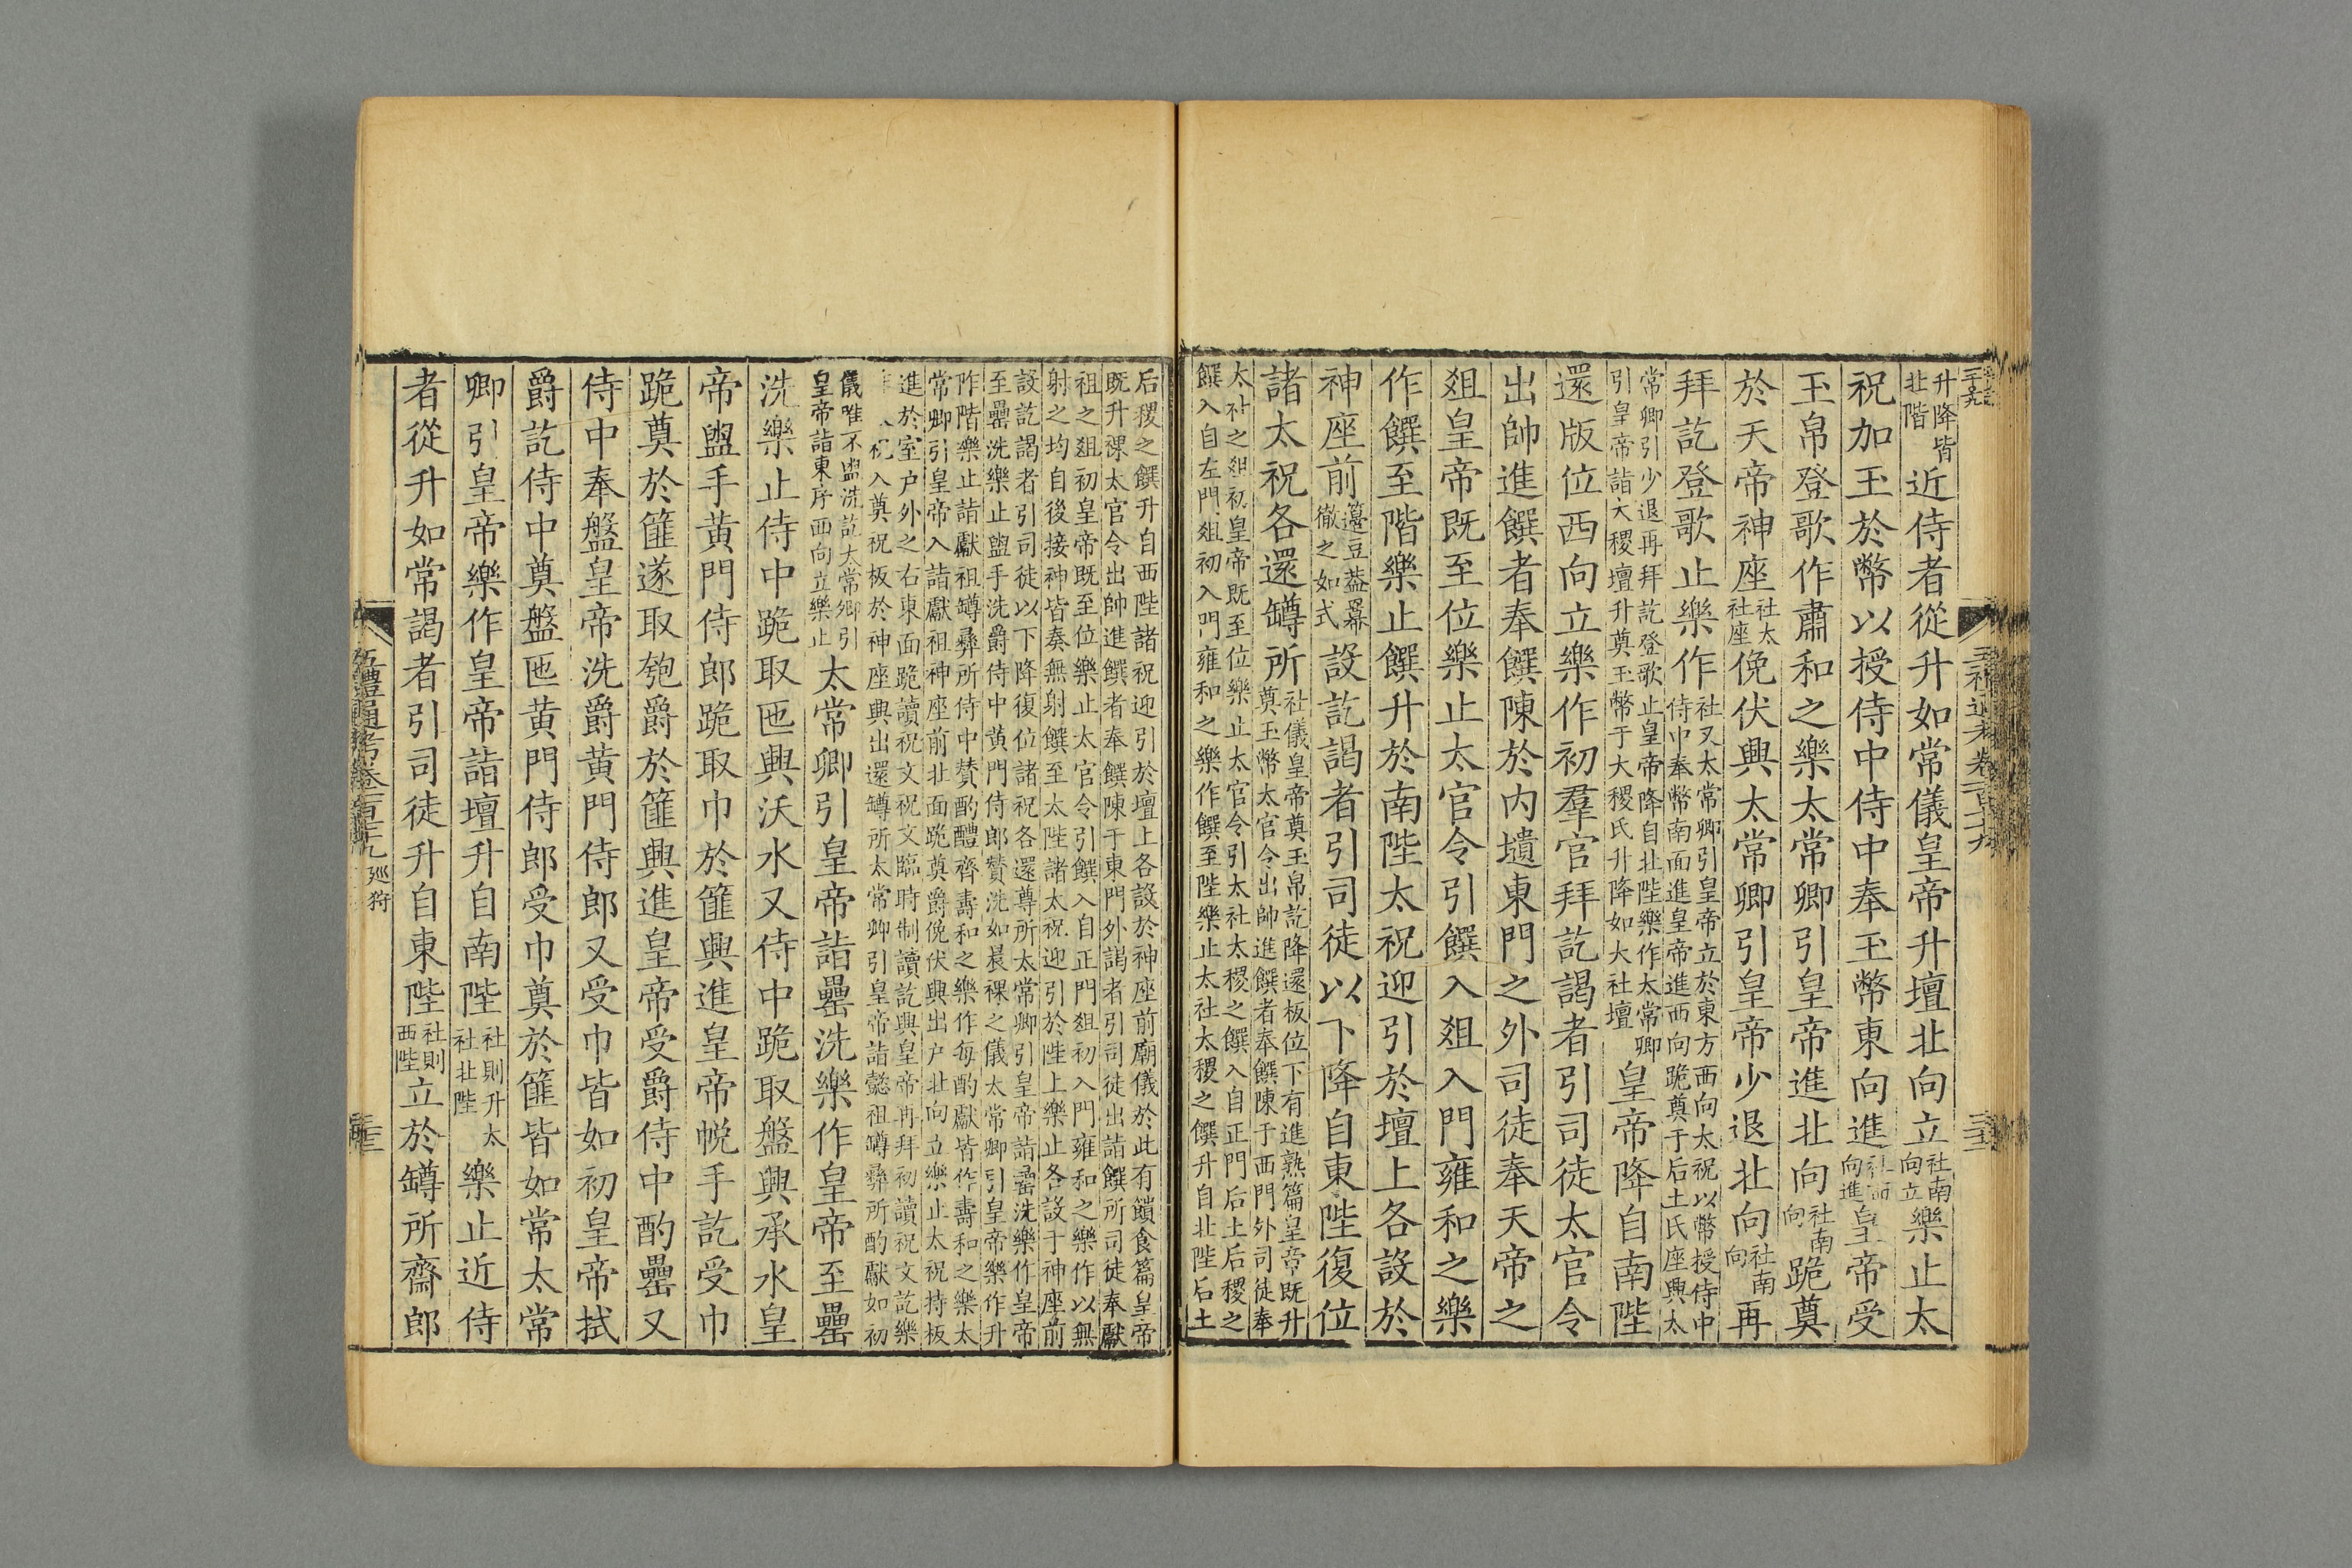 升降皆北階近侍者從升如常儀皇帝升壇北向立社南向立樂止太
祝加玉於幣以授侍中侍中奉玉幣東向進向進皇帝受
玉帛登歌作肅和之樂太常卿引皇帝進北向社南向跪奠
於天帝神座社太社座俛伏興太常卿引皇帝少退北向社南向再
拜訖登歌止樂作社又太常卿引皇帝立於東方西向太祝以幣授侍中侍中奉幣南面進皇帝進西向跪奠于后土氏座興太
常卿引少退再拜訖登歌止皇帝降自北陛樂作太常卿引皇帝詣大稷壇升奠玉幣于大稷氏升降如大社壇皇帝降自南陛
還版位西向立樂作初羣官拜訖謁者引司徒太官令
出帥進饌者奉饌陳於內壝東門之外司徒奉天帝之
俎皇帝既至位樂止太官令引饌入俎入門雍和之樂
作饌至階樂止饌升於南陛太祝迎引於壇上各設於
神座前籩豆蓋冪徹之如式設訖謁者引司徒以下降自東陛復位
諸太祝各還罇所社儀皇帝奠玉帛訖降還板位下有進熟篇皇帝既升奠玉幣太官令出帥進饌者奉饌陳于西門外司徒奉
太社之俎初皇帝既至位樂止太官令引太社太稷之饌入自正門后土后稷之饌入自左門俎初入門雍和之樂作饌至陛樂止太社太稷之饌升自北陛后土
后稷之饌升自西陛諸祝迎引於壇上各設於神座前廟儀於此有饋食篇皇帝既升祼太官令出帥進饌者奉饌陳于東門外謁者引司徒出詣饌所司徒奉獻
祖之俎初皇帝既至位樂止太官令引饌入自正門俎初入門雍和之樂作以無射之均自後接神皆奏無射饌至太陛諸太祝迎引於陛上樂止各設于神座前
設訖謁者引司徒以下降復位諸祝各還尊所太常卿引皇帝詣罍洗樂作皇帝至罍洗樂止盥手洗爵侍中黃門侍郎贊洗如晨祼之儀太常卿引皇帝樂作升
阼階樂止詣獻祖罇彝所侍中贊酌醴齊壽和之樂作每酌獻皆作壽和之樂太常卿引皇帝入詣獻祖神座前北面跪奠爵俛伏興出戶北向立樂止太祝持板
進於室戶外之右東面跪讀祝文祝文臨時制讀訖興皇帝再拜初讀祝文訖樂祝入奠祝板於神座興出還罇所太常卿引皇帝詣懿祖罇彝所酌獻如初
儀唯不盥洗訖太常卿引皇帝詣東序西向立樂止太常卿引皇帝詣罍洗樂作皇帝至罍
洗樂止侍中跪取匜興沃水又侍中跪取盤興承水皇
帝盥手黃門侍郎跪取巾於篚興進皇帝帨手訖受巾
跪奠於篚遂取匏爵於篚興進皇帝受爵侍中酌罍又
侍中奉盤皇帝洗爵黃門侍郎又受巾皆如初皇帝拭
爵訖侍中奠盤匜黃門侍郎受巾奠於篚皆如常太常
卿引皇帝樂作皇帝詣壇升自南陛社則升太社北陛樂止近侍
者從升如常謁者引司徒升自東陛社則西陛立於罇所齋郎
巡狩